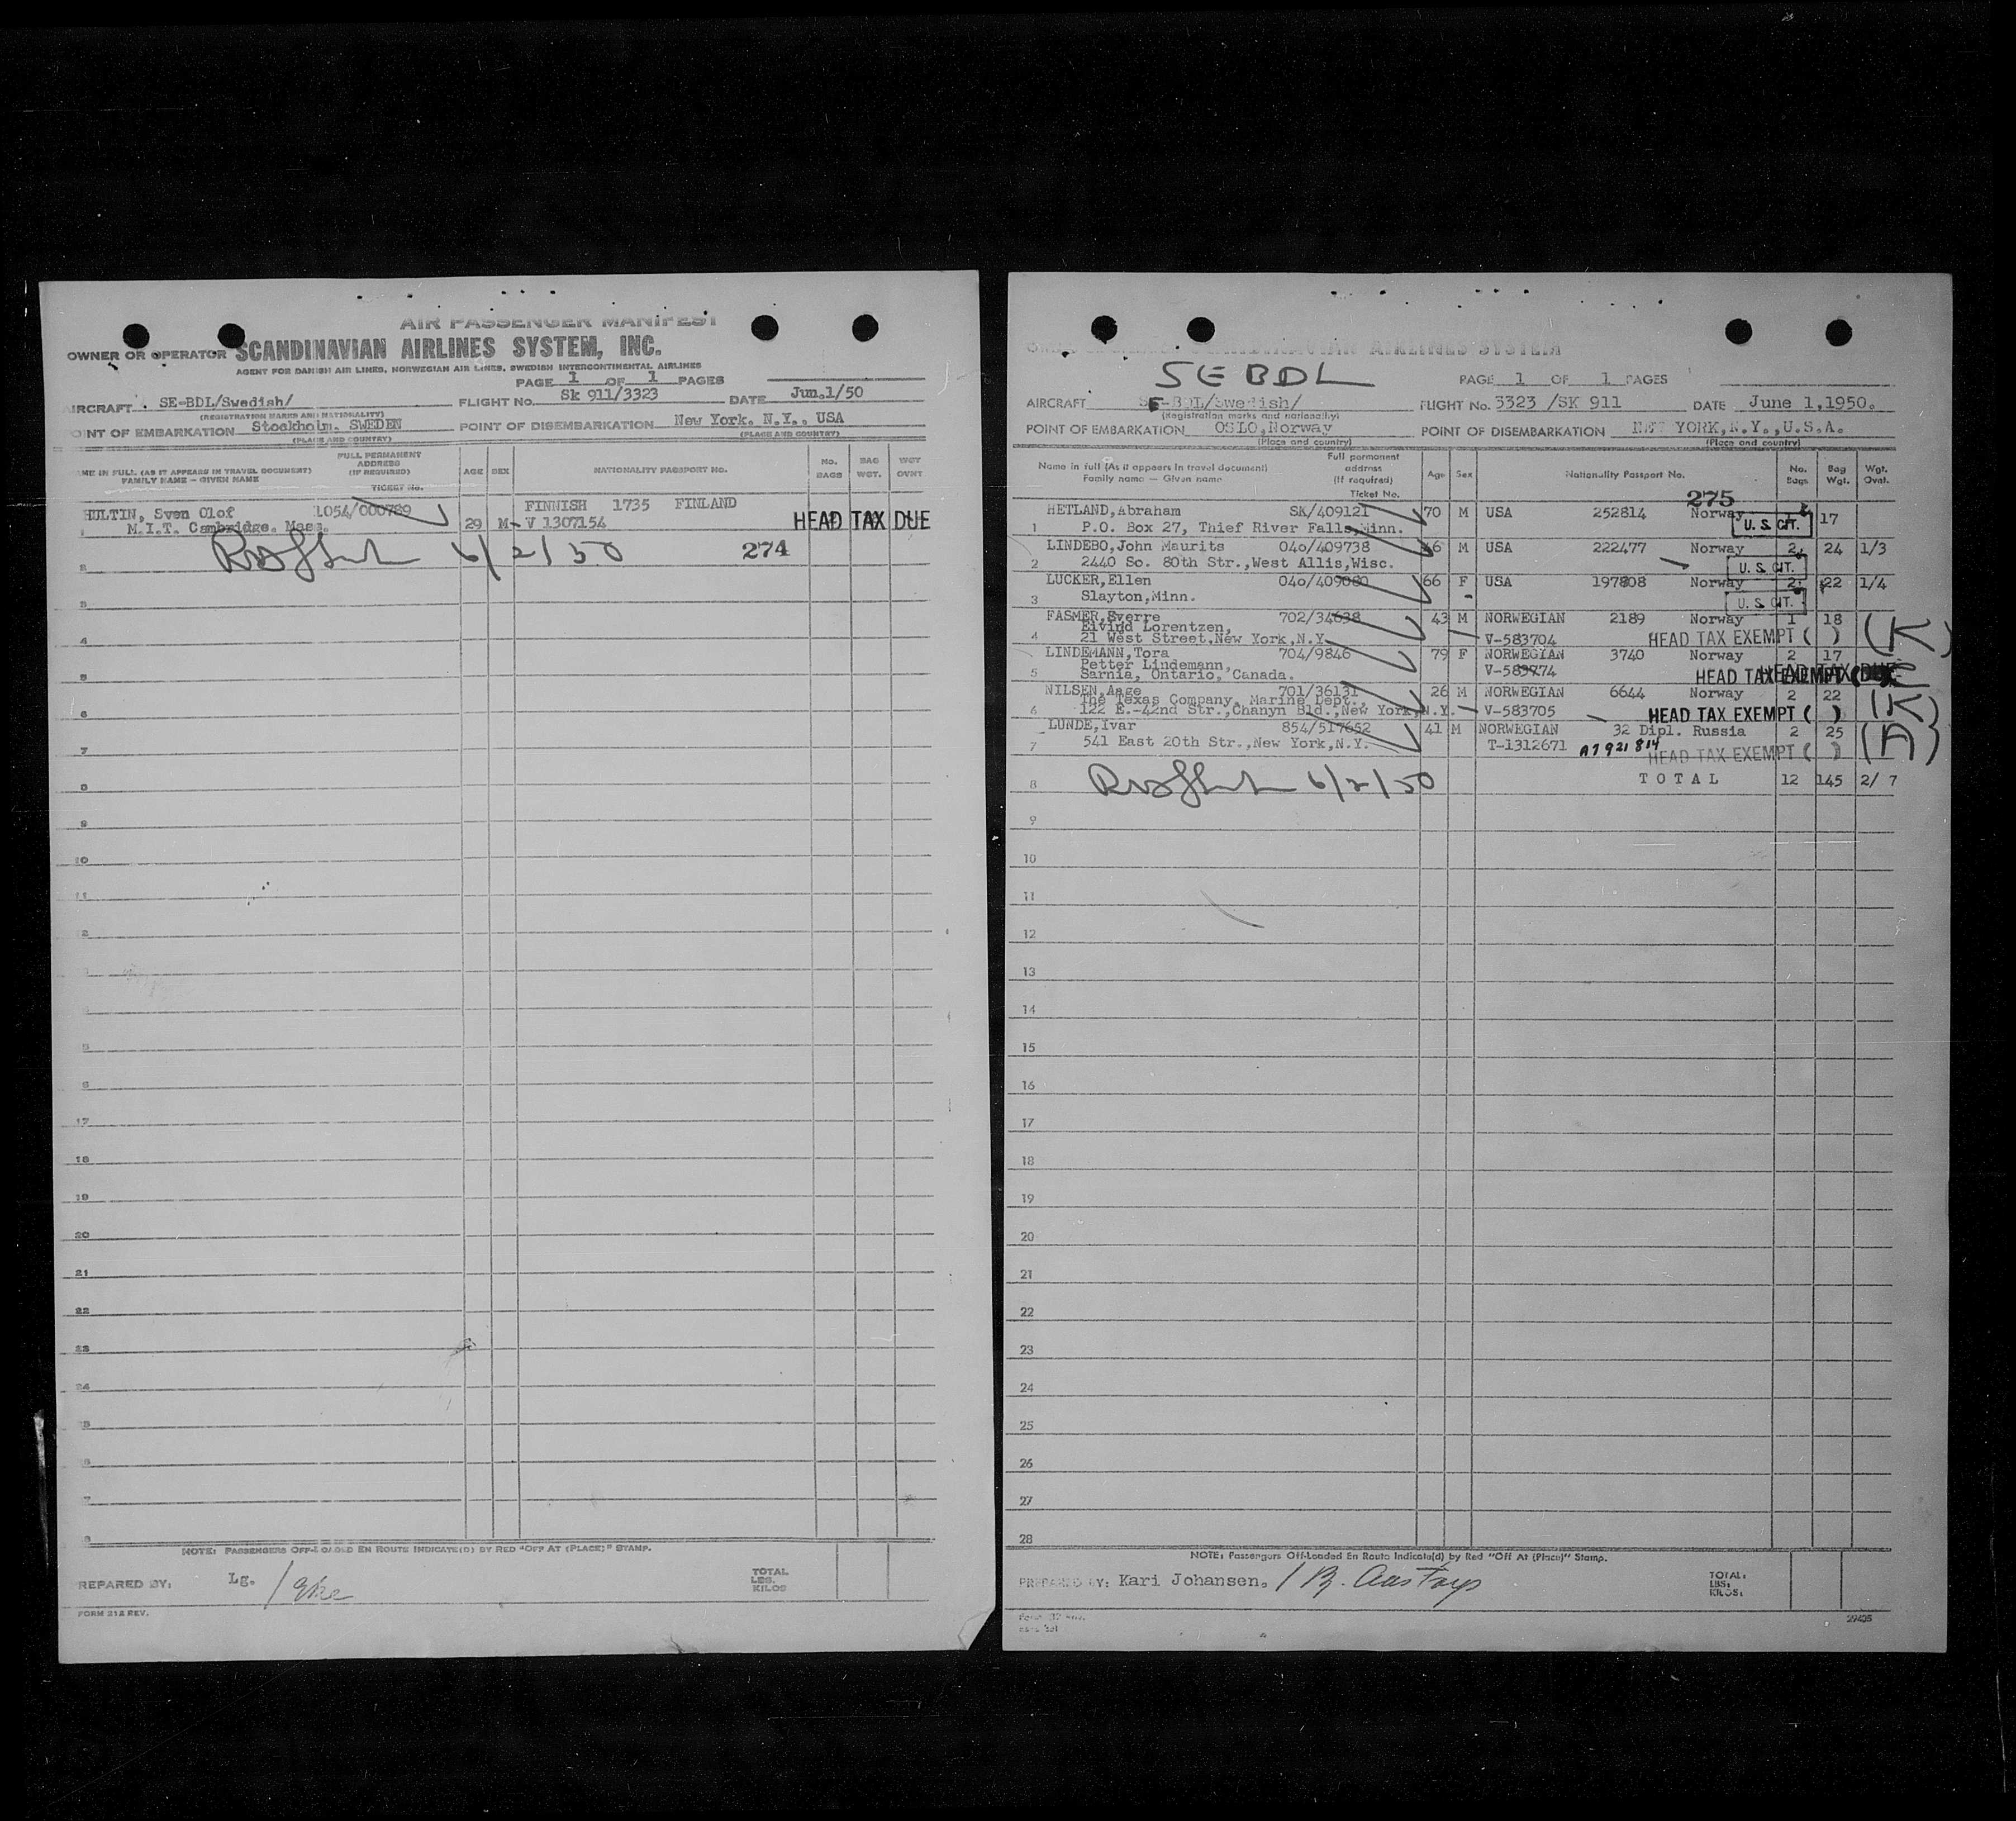 AIR PASSENGER MANIFEST
OWNER OR OPERATOR SCANDINAVIAN AIRLINES SYSTEM, INC.
AGENT FOR DANISH AIR LINES, NORWEGIAN AIR LINES, SWEDISH INTERCONTINENTAL AIRLINES
PAGE 1 OF 1 PAGES
AIRCRAFT SE-BDL/Swedish/ FLIGHT No. Sk 911/3323 DATE Jun.1/50
(REGISTRATION MARKS AND NATIONALITY)
OINT OF EMBARKATION Stockholm. SWEDEN POINT OF DISEMBARKATION New York. N.Y.. USA
(PLACE AND COUNTRY) (PLACE AND COUNTRY)
AME IN FULL (AS IT APPEARS IN TRAVEL DOCUMENT) FAMILY NAME — GIVEN NAME
FULL PERMANENT ADDRESS (IF REQUIRED) TICKET No.
AGE SEX NATIONALITY PASSPORT NO. No. BAGS BAG WGT. WGT OVNT
HULTIN, Sven Olof 1054/000789 FINNISH 1735 FINLAND
M.I.T. Cambridge. Mass. 29 M V 1307154 HEAD TAX DUE
6/2/50 274
3
4
5
6
7
8
9
10
11
12
17
18
19
20
21
22
23
24
NOTE: PASSENGERS OFF-LOADED EN ROUTE INDICATE(D) BY RED "OFF AT (PLACE)" STAMP.
PREPARED BY: Lg. TOTAL LBS. KILOS
FORM 212 REV.
SCANDINAVIAN AIRLINES SYSTEM
SEBDL PAGE 1 OF 1 PAGES
AIRCRAFT SE-BDL/Swedish/ FLIGHT No. 3323 /SK 911 DATE June 1,1950.
(Registration marks and nationality)
POINT OF EMBARKATION OSLO,Norway POINT OF DISEMBARKATION NEW YORK,N.Y.,U.S.A.
(Place and country) (Place and country)
Name in full (As it appears in travel document) Family name — Given name
Full permanent address (If required) Ticket No.
Age Sex Nationality Passport No. No. Bags Bag Wgt. Wgt. Ovnt.
275
HETLAND,Abraham SK/409121 70 M USA 252814 Norway 17
1 P.O. Box 27, Thief River Falls,Minn. U. S. CIT.
LINDEBO,John Maurits 040/409738 46 M USA 222477 Norway 2 24 1/3
2 2440 So. 80th Str.,West Allis,Wisc. U. S. CIT.
LUCKER,Ellen 040/409080 66 F USA 197808 Norway 2 22 1/4
3 Slayton,Minn. U. S. CIT.
FASMER,Sverre 702/34638 43 M NORWEGIAN 2189 Norway 1 18
Eivind Lorentzen,
4 21 West Street,New York,N.Y. V-583704 HEAD TAX EXEMPT ( ) (K)
LINDEMANN,Tora 704/9846 79 F NORWEGIAN 3740 Norway 2 17
Petter Lindemann,
5 Sarnia, Ontario, Canada. V-583974 HEAD TAX EXEMPT HEAD TAX DUE
NILSEN,Aage 701/36131 26 M NORWEGIAN 6644 Norway 2 22
The Texas Company, Marine Dept.,
6 122 E.-42nd Str.,Chanyn Bld.,New York,N.Y. V-583705 HEAD TAX EXEMPT ( ) (K)
LUNDE,Ivar 854/517652 41 M NORWEGIAN 32 Dipl. Russia 2 25
7 541 East 20th Str.,New York,N.Y. T-1312671 A7921814 HEAD TAX EXEMPT ( ) (A)
8 6/2/50 TOTAL 12 145 2/ 7
9
10
11
12
13
14
15
16
17
18
19
20
21
22
23
24
25
26
27
28
NOTE: Passengers Off-Loaded En Route Indicate(d) by Red "Off At (Place)" Stamp.
PREPARED BY: Kari Johansen. TOTAL: LBS: KILOS:
29405